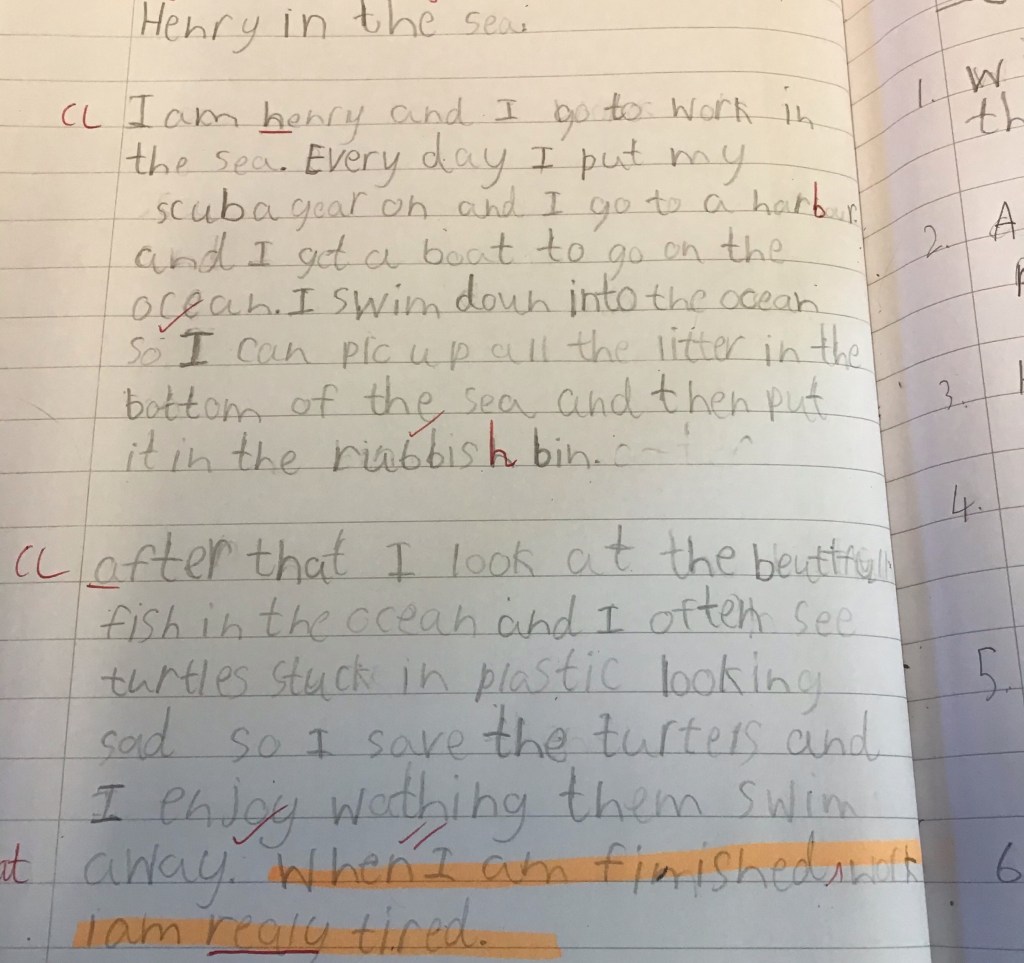 Henry in the sea.
CL I am henry and I go to work in
the sea. Every day I put my
scuba gear on and I go to a harbur
and I get a boat to go on the
ocean. I swim doun into the ocean
so I can pic up all the litter in the
bottom of the sea and then put
it in the riabbish bin.
CL after that I look at the beuttfull
fish in the ocean and I often see
turtles stuck in plastic looking
sad so I save the turters and
I enjoy wathing them swim
away. When I am finished work
I am realy tired.
1. W
th
2. A
3.
4.
5.
6